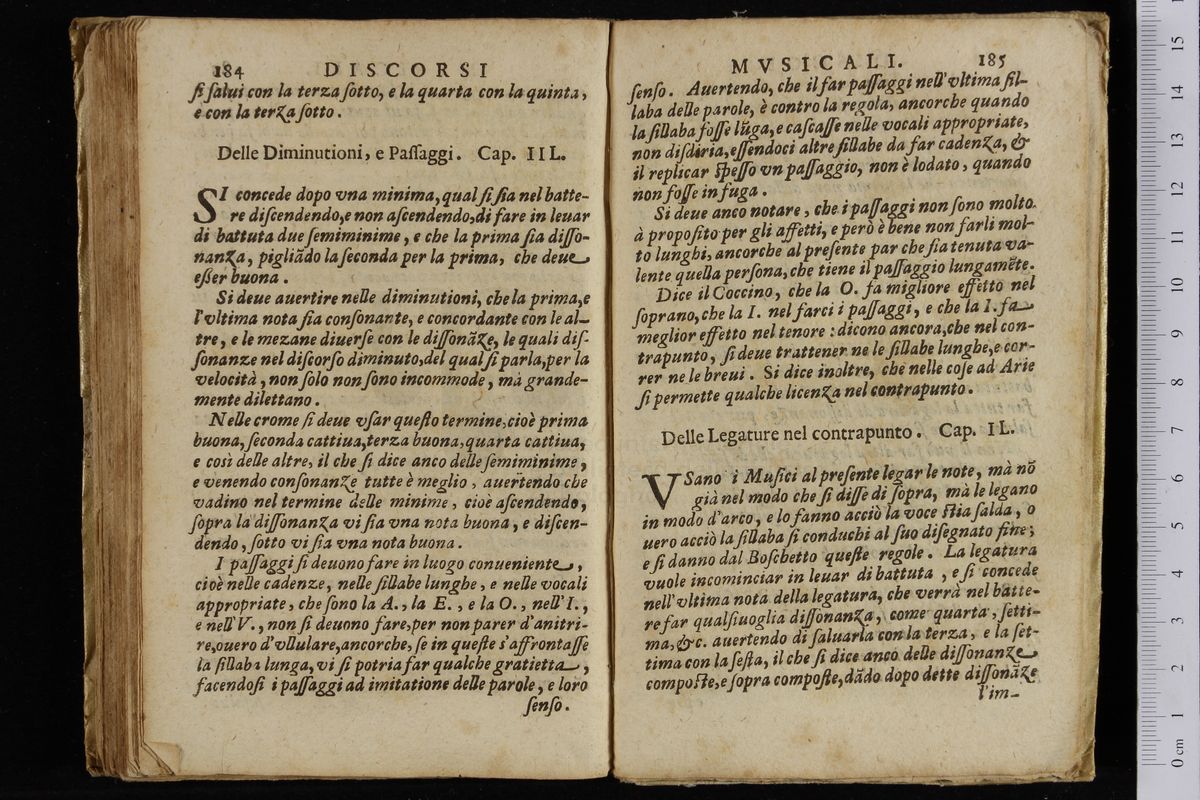 184 DISCORSI
ſi ſalui con la terza ſotto, e la quarta con la quinta,
e con la terza ſotto.
Delle Diminutioni, e Paſſaggi. Cap. IIL.
SI concede dopo vna minima, qual ſi ſia nel batte-
re diſcendendo, e non aſcendendo, di fare in leuar
di battuta due ſemiminime, e che la prima ſia diſſo-
nanza, pigliãdo la ſeconda per la prima, che deue
eſſer buona.
Si deue auertire nelle diminutioni, che la prima, e
l'vltima nota ſia conſonante, e concordante con le al-
tre, e le mezane diuerſe con le diſſonãze, le quali diſ-
ſonanze nel diſcorſo diminuto, del qual ſi parla, per la
velocità, non ſolo non ſono incommode, mà grande-
mente dilettano.
Nelle crome ſi deue vſar queſto termine, cioè prima
buona, ſeconda cattiua, terza buona, quarta cattiua,
e così delle altre, il che ſi dice anco delle ſemiminime,
e venendo conſonanze tutte è meglio, auertendo che
vadino nel termine delle minime, cioè aſcendendo,
ſopra la diſſonanza vi ſia vna nota buona, e diſcen-
dendo, ſotto vi ſia vna nota buona.
I paſſaggi ſi deuono fare in luogo conueniente,
cioè nelle cadenze, nelle ſillabe lunghe, e nelle vocali
appropriate, che ſono la A., la E., e la O., nell'I.,
e nell'V., non ſi deuono fare, per non parer d'anitri-
re, ouero d'vllulare, ancorche, ſe in queſte s'affrontaſſe
la ſillaba lunga, vi ſi potria far qualche gratietta,
facendoſi i paſſaggi ad imitatione delle parole, e loro
ſenſo.
MVSICALI. 185
ſenſo. Auertendo, che il far paſſaggi nell'vltima ſil-
laba delle parole, è contro la regola, ancorche quando
la ſillaba foſſe lũga, e caſcaſſe nelle vocali appropriate,
non diſdiria, eſſendoci altre ſillabe da far cadenza, &
il replicar ſpeſſo vn paſſaggio, non è lodato, quando
non foſſe in fuga.
Si deue anco notare, che i paſſaggi non ſono molto
à propoſito per gli affetti, e però è bene non farli mol-
to lunghi, ancorche al preſente par che ſia tenuta va-
lente quella perſona, che tiene il paſſaggio lungamẽte.
Dice il Coccino, che la O. fa migliore effetto nel
ſoprano, che la I. nel farci i paſſaggi, e che la I. fa
meglior effetto nel tenore: dicono ancora, che nel con-
trapunto, ſi deue trattener ne le ſillabe lunghe, e cor-
rer ne le breui. Si dice inoltre, che nelle coſe ad Arie
ſi permette qualche licenza nel contrapunto.
Delle Legature nel contrapunto. Cap. IL.
VSano i Muſici al preſente legar le note, mà nõ
già nel modo che ſi diſſe di ſopra, mà le legano
in modo d'arco, e lo fanno acciò la voce ſtia ſalda, o
uero acciò la ſillaba ſi conduchi al ſuo diſegnato fine;
e ſi danno dal Boſchetto queſte regole. La legatura
vuole incominciar in leuar di battuta, e ſi concede
nell'vltima nota della legatura, che verrà nel batte-
re far qualſiuoglia diſſonanza, come quarta, ſetti-
ma, &c. auertendo di ſaluarla con la terza, e la ſet-
tima con la ſeſta, il che ſi dice anco delle diſſonanze
compoſte, e ſopra compoſte, dãdo dopo dette diſſonãze
l'im-